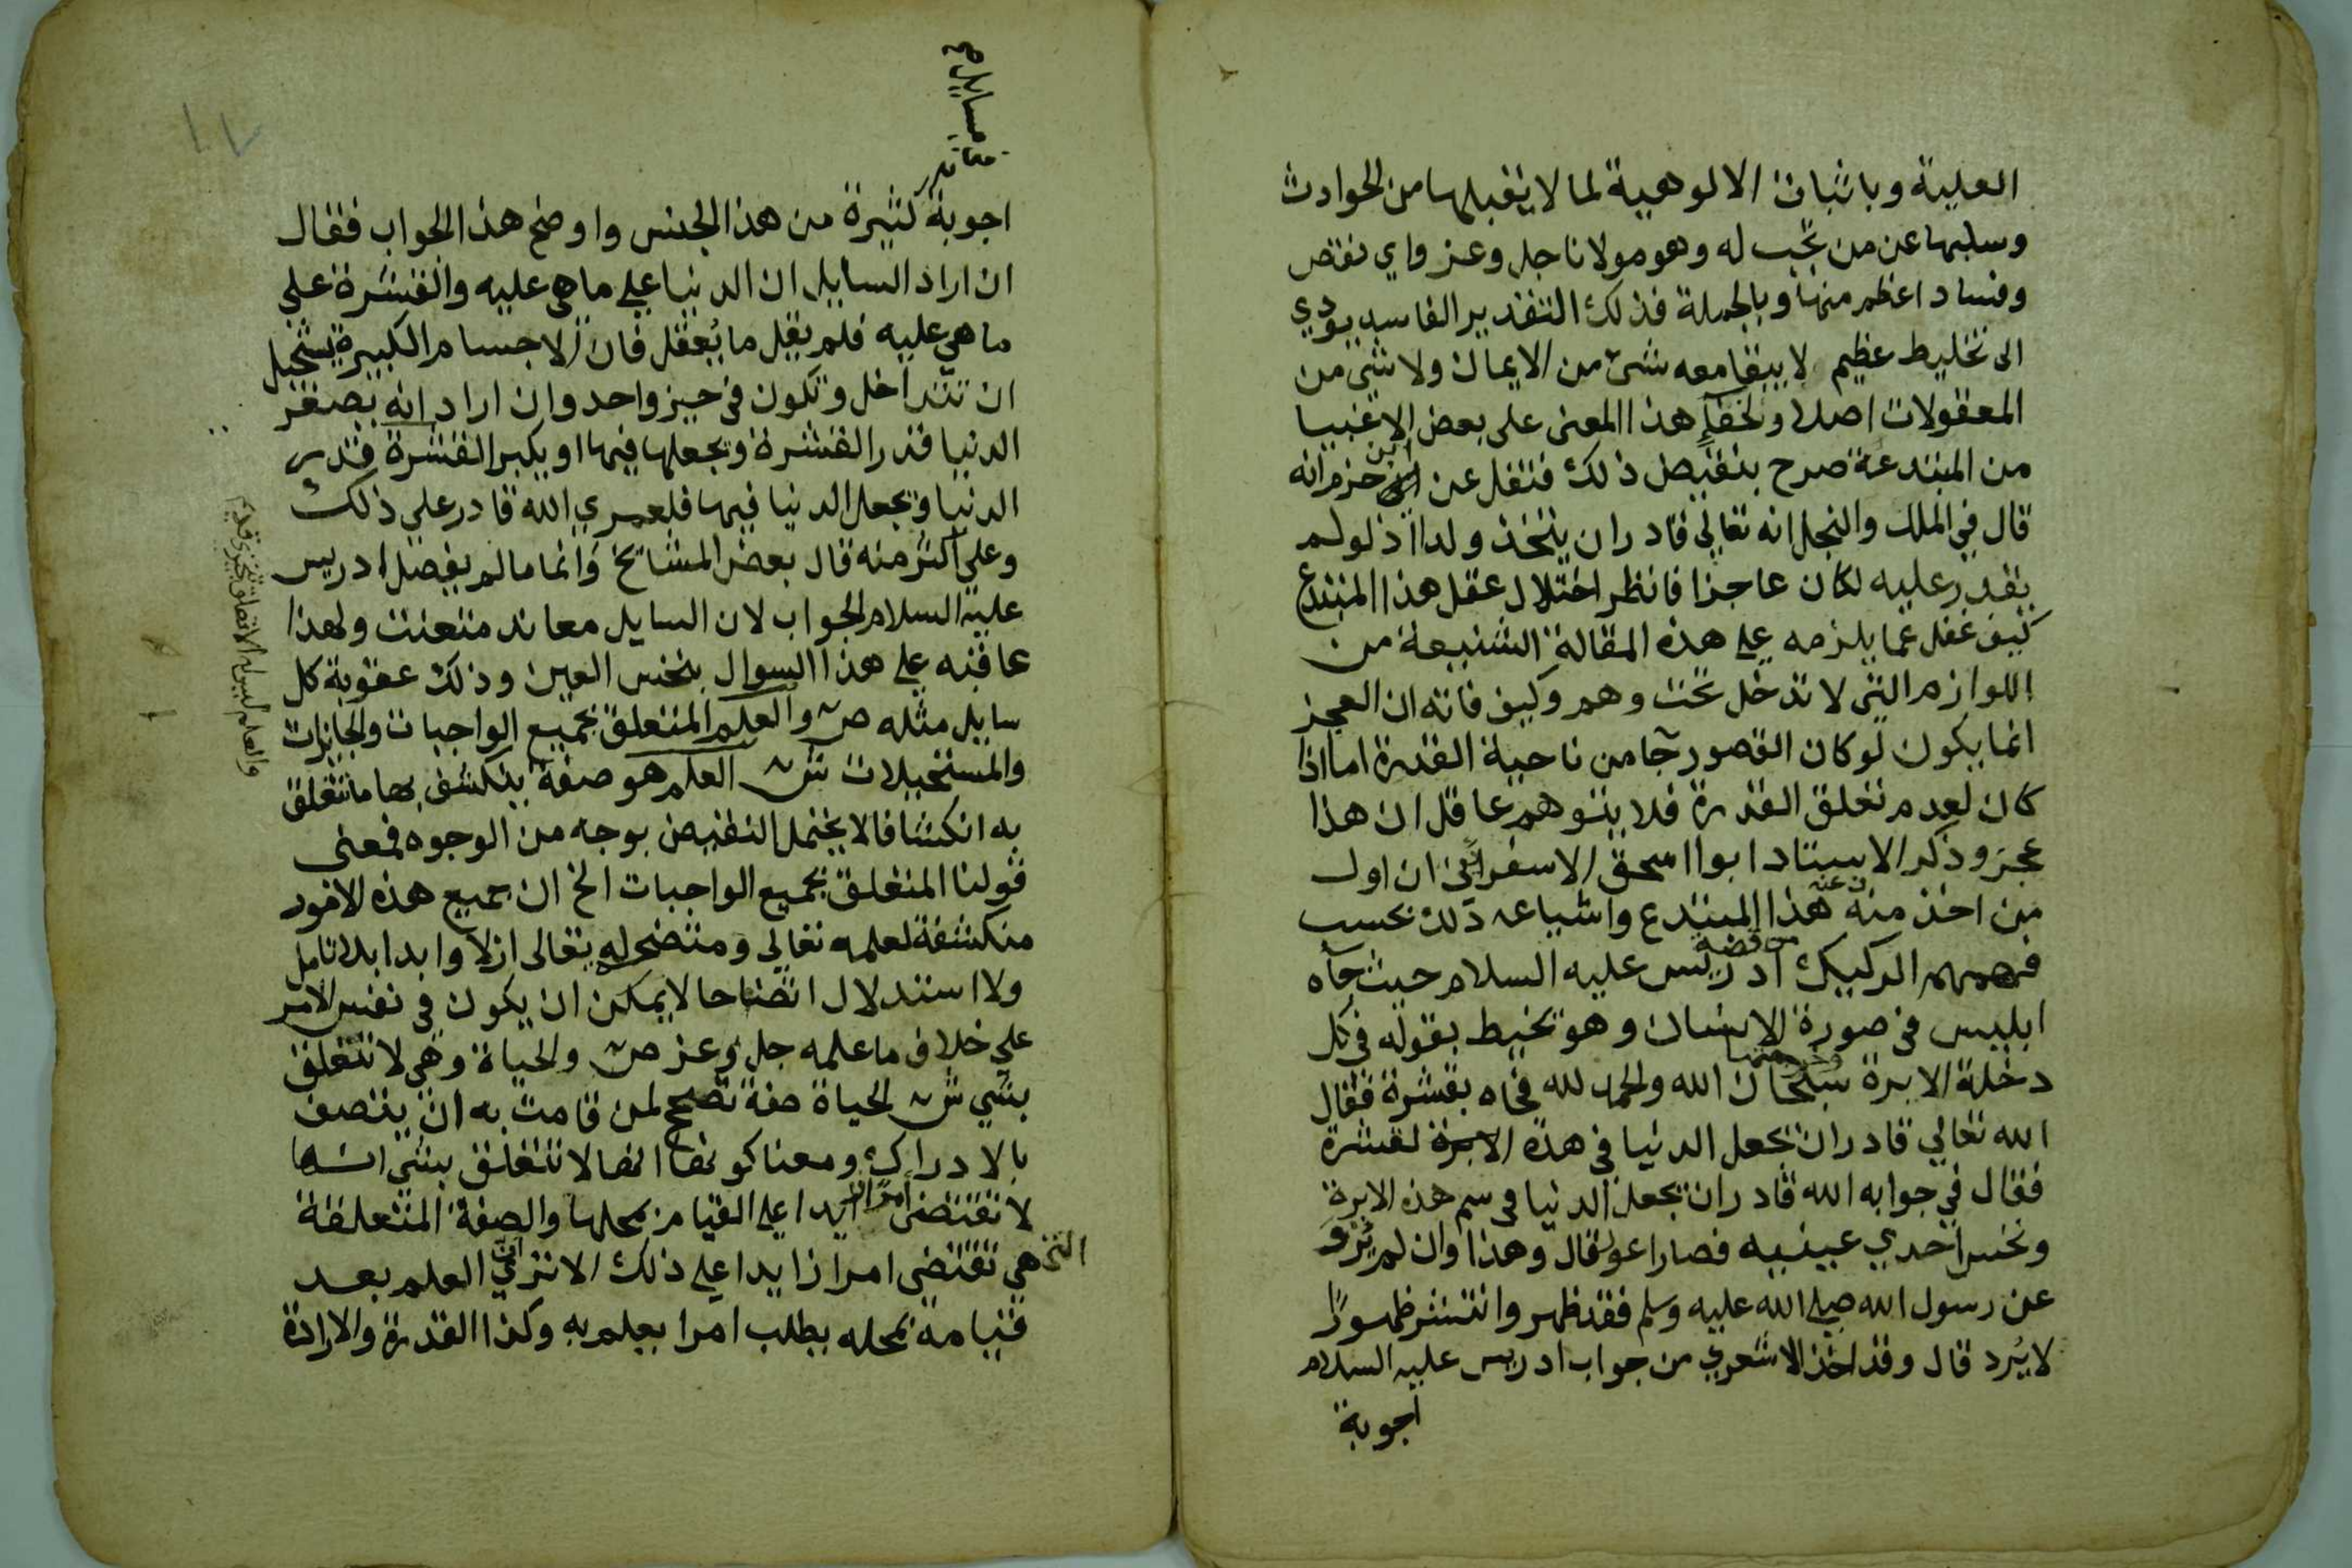 العلية وباثبات الالوهية لما لا يقبلها من الحوادث
وسلبها عن من تجب له وهو مولانا جل وعز واي نقص
وفساد اعظم منها وبالجملة فذلك التقدير الفاسد يودي
الى تخليط عظيم لا يبقا معه شئ من الايمان ولا شئ من
المعقولات اصلا ولخفآء هذا المعنى على بعض الاغبيا
من المبتدعة صرح بنقيض ذلك فنقل عن ابن حزم انه
قال في الملل والنحل انه تعالى قادر ان يتخذ ولدا اذ لو لم
يقدر عليه لكان عاجزا فانظر اختلال عقل هذا المبتدع
كيف غفل عما يلزمه على هذه المقالة الشنيعة من
اللوازم التي لا تدخل تحت وهم وكيف فاته ان العجز
انما يكون لو كان القصور جآ من ناحية القدرة اما اذا
كان لعدم تعلق القدرة فلا يتوهم عاقل ان هذا
عجز وذكر الاستاد ابوا اسحق الاسفرائنى ان اول
من اخذ منه هذا المبتدع واشياعه ذلك بحسب
فهمهم الركيك من قصة ادريس عليه السلام حيث جآه
ابليس في صورة الانسان وهو يخيط بقوله في كل
دخلة الابرة وخرجتها سبحان الله والحمد لله فجاه بقشرة فقال
الله تعالى قادر ان يجعل الدنيا في هذه الابرة لقشرة
فقال في جوابه الله قادر ان يجعل الدنيا في سم هذه الابرة
ونخس احدي عينيه فصار اعور قال وهذا وان لم يُرْوَ
عن رسول الله صلى الله عليه وسلم فقد ظهر وانتشر ظهورًا
لا يُرد قال وقد اخذ الاشعري من جواب ادريس عليه السلام
اجوبة
اجوبة كثيرة من هذا الجنس واوضح هذا الجواب فقال
ان اراد السايل ان الدنيا على ما هي عليه والقشرة على
ما هي عليه فلم يقل ما يُعقل فان الاجسام الكبيرة يستحيل
ان تتداخل وتكون في حيز واحد وان اراد انه يصغر
الدنيا قدر القشرة ويجعلها فيها او يكبر القشرة قدر
الدنيا ويجعل الدنيا فيها فلعمري الله قادر على ذلك
وعلى اكثر منه قال بعض المشائخ وانما ما لم يفصل ادريس
عليه السلام الجواب لان السايل معاند متعنت ولهذا
عاقبه على هذا السوال بنخس العين وذلك عقوبة كل
سايل مثله ص والعلم المتعلق بجميع الواجبات والجائزات
والمستحيلات ش العلم هو صفة ينكشف بها ما تتعلق
به انكشافا لا يحتمل النقيض بوجه من الوجوه فمعنى
قولنا المتعلق بجميع الواجبات الخ ان جميع هذه الامور
منكشفة لعلمه تعالى ومتضح له تعالى ازلا وابدا بلا تامل
ولا استدلال اتضاحا لا يمكن ان يكون في نفس الامر
على خلاف ما علمه جل وعز ص والحياة وهي لا تتعلق
بشي ش الحياة صفة تصحح لمن قامت به ان يتصف
بالادراك ومعنا كونها انها لا تتعلق بشي انها
لا تقتضى امرا زايدا على القيام بمحلها والصفة المتعلقة
التي هي تقتضى امرا زايدا على ذلك الا ترى ان العلم بعد
قيامه بمحله يطلب امرا يعلم به وكذا القدرة والارادة